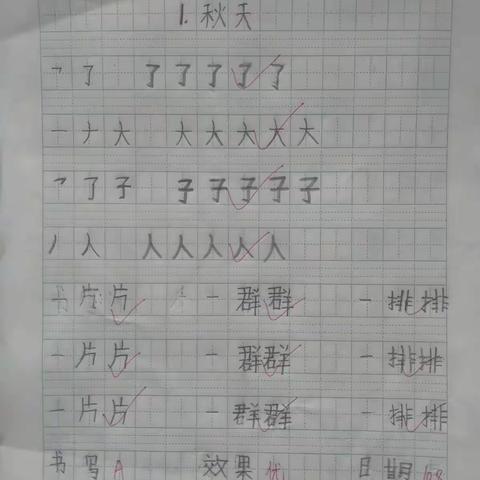 1. 秋天
㇖ 了 了 了 了 了 了
一 ナ 大 大 大 大 大 大
㇖ 了 子 子 子 子 子 子
丿 人 人 人 人 人 人
片 片 一 群 群 一 排 排
一 片 片 一 群 群 一 排 排
一 片 片 一 群 群 一 排 排
书写 A 效果 优 日期